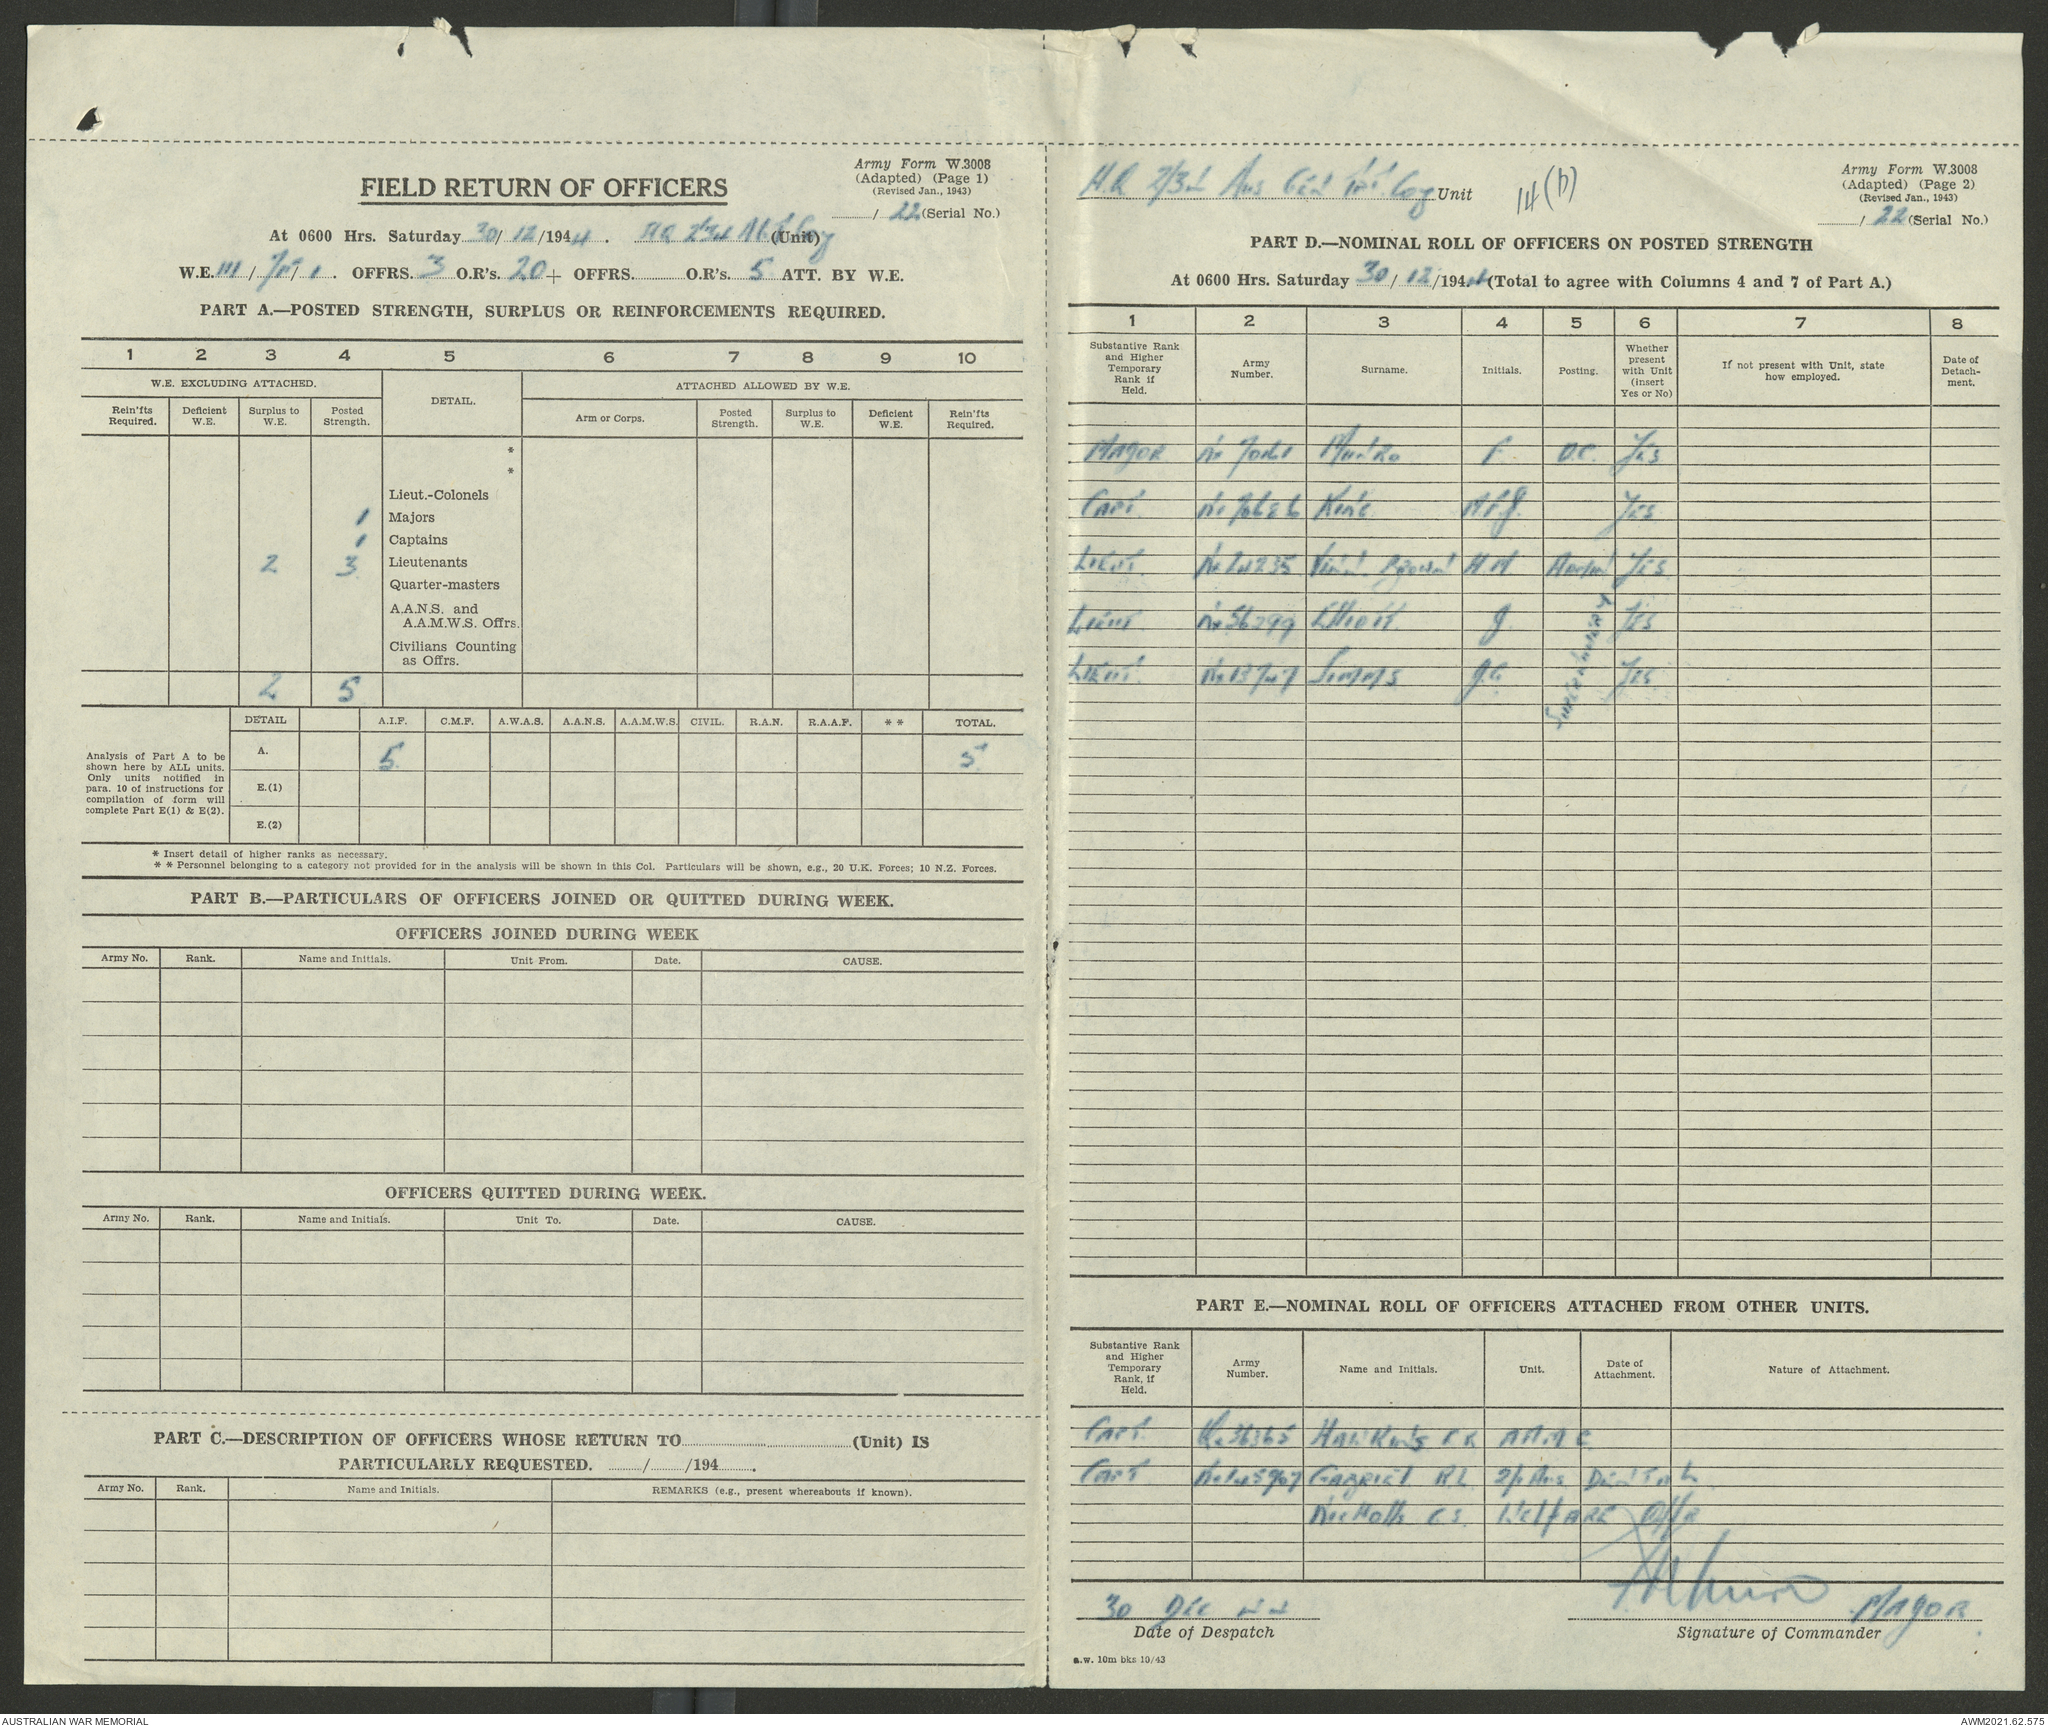 Army Form W.3008
(Adapted) (Page 1)
(Revised Jan., 1943)
FIELD RETURN OF OFFICERS
/ 22 (Serial No.)
At 0600 Hrs. Saturday 30/ 12 /1944. HQ 2/3rd (Unit) Coy
W.E. III / / 1. OFFRS. 3 O.R's. 20 + OFFRS. O.R's. 5 ATT. BY W.E.
PART A.—POSTED STRENGTH, SURPLUS OR REINFORCEMENTS REQUIRED.
1 2 3 4 5 6 7 8 9 10
W.E. EXCLUDING ATTACHED. DETAIL. ATTACHED ALLOWED BY W.E.
Rein'fts Required. Deficient W.E. Surplus to W.E. Posted Strength. Arm or Corps. Posted Strength. Surplus to W.E. Deficient W.E. Rein'fts Required.
*
*
Lieut.-Colonels
1 Majors
1 Captains
2 3 Lieutenants
Quarter-masters
A.A.N.S. and
A.A.M.W.S. Offrs.
Civilians Counting
as Offrs.
2 5
DETAIL A.I.F. C.M.F. A.W.A.S. A.A.N.S. A.A.M.W.S. CIVIL. R.A.N. R.A.A.F. * * TOTAL.
Analysis of Part A to be
shown here by ALL units.
Only units notified in
para. 10 of instructions for
compilation of form will
complete Part E(1) & E(2).
A. 5 5
E.(1)
E.(2)
* Insert detail of higher ranks as necessary.
* * Personnel belonging to a category not provided for in the analysis will be shown in this Col. Particulars will be shown, e.g., 20 U.K. Forces; 10 N.Z. Forces.
PART B.—PARTICULARS OF OFFICERS JOINED OR QUITTED DURING WEEK.
OFFICERS JOINED DURING WEEK
Army No. Rank. Name and Initials. Unit From. Date. CAUSE.
OFFICERS QUITTED DURING WEEK.
Army No. Rank. Name and Initials. Unit To. Date. CAUSE.
PART C.—DESCRIPTION OF OFFICERS WHOSE RETURN TO (Unit) IS
PARTICULARLY REQUESTED. / /194 .
Army No. Rank. Name and Initials. REMARKS (e.g., present whereabouts if known).
H.Q 2/3rd Aus Coy Unit
14(b)
Army Form W.3008
(Adapted) (Page 2)
(Revised Jan., 1943)
/ 22 (Serial No.)
PART D.—NOMINAL ROLL OF OFFICERS ON POSTED STRENGTH
At 0600 Hrs. Saturday 30/ 12 /1944 (Total to agree with Columns 4 and 7 of Part A.)
1 2 3 4 5 6 7 8
Substantive Rank and Higher Temporary Rank if Held. Army Number. Surname. Initials. Posting. Whether present with Unit (insert Yes or No) If not present with Unit, state how employed. Date of Detachment.
MAJOR Munro F. O.C. Yes
CAPT Yes
LIEUT Brown Yes
LIEUT Elliott J Yes
LIEUT Simms Yes
Supernumerary
PART E.—NOMINAL ROLL OF OFFICERS ATTACHED FROM OTHER UNITS.
Substantive Rank and Higher Temporary Rank, if Held. Army Number. Name and Initials. Unit. Date of Attachment. Nature of Attachment.
CAPT. Hawkins
CAPT Gabriel R.L. 2/1 Aus Dental
Nicholls C.S. Welfare Offr
Munro MAJOR
30 Dec 44
Date of Despatch
Signature of Commander
a.w. 10m bks 10/43
AUSTRALIAN WAR MEMORIAL
AWM2021.62.575